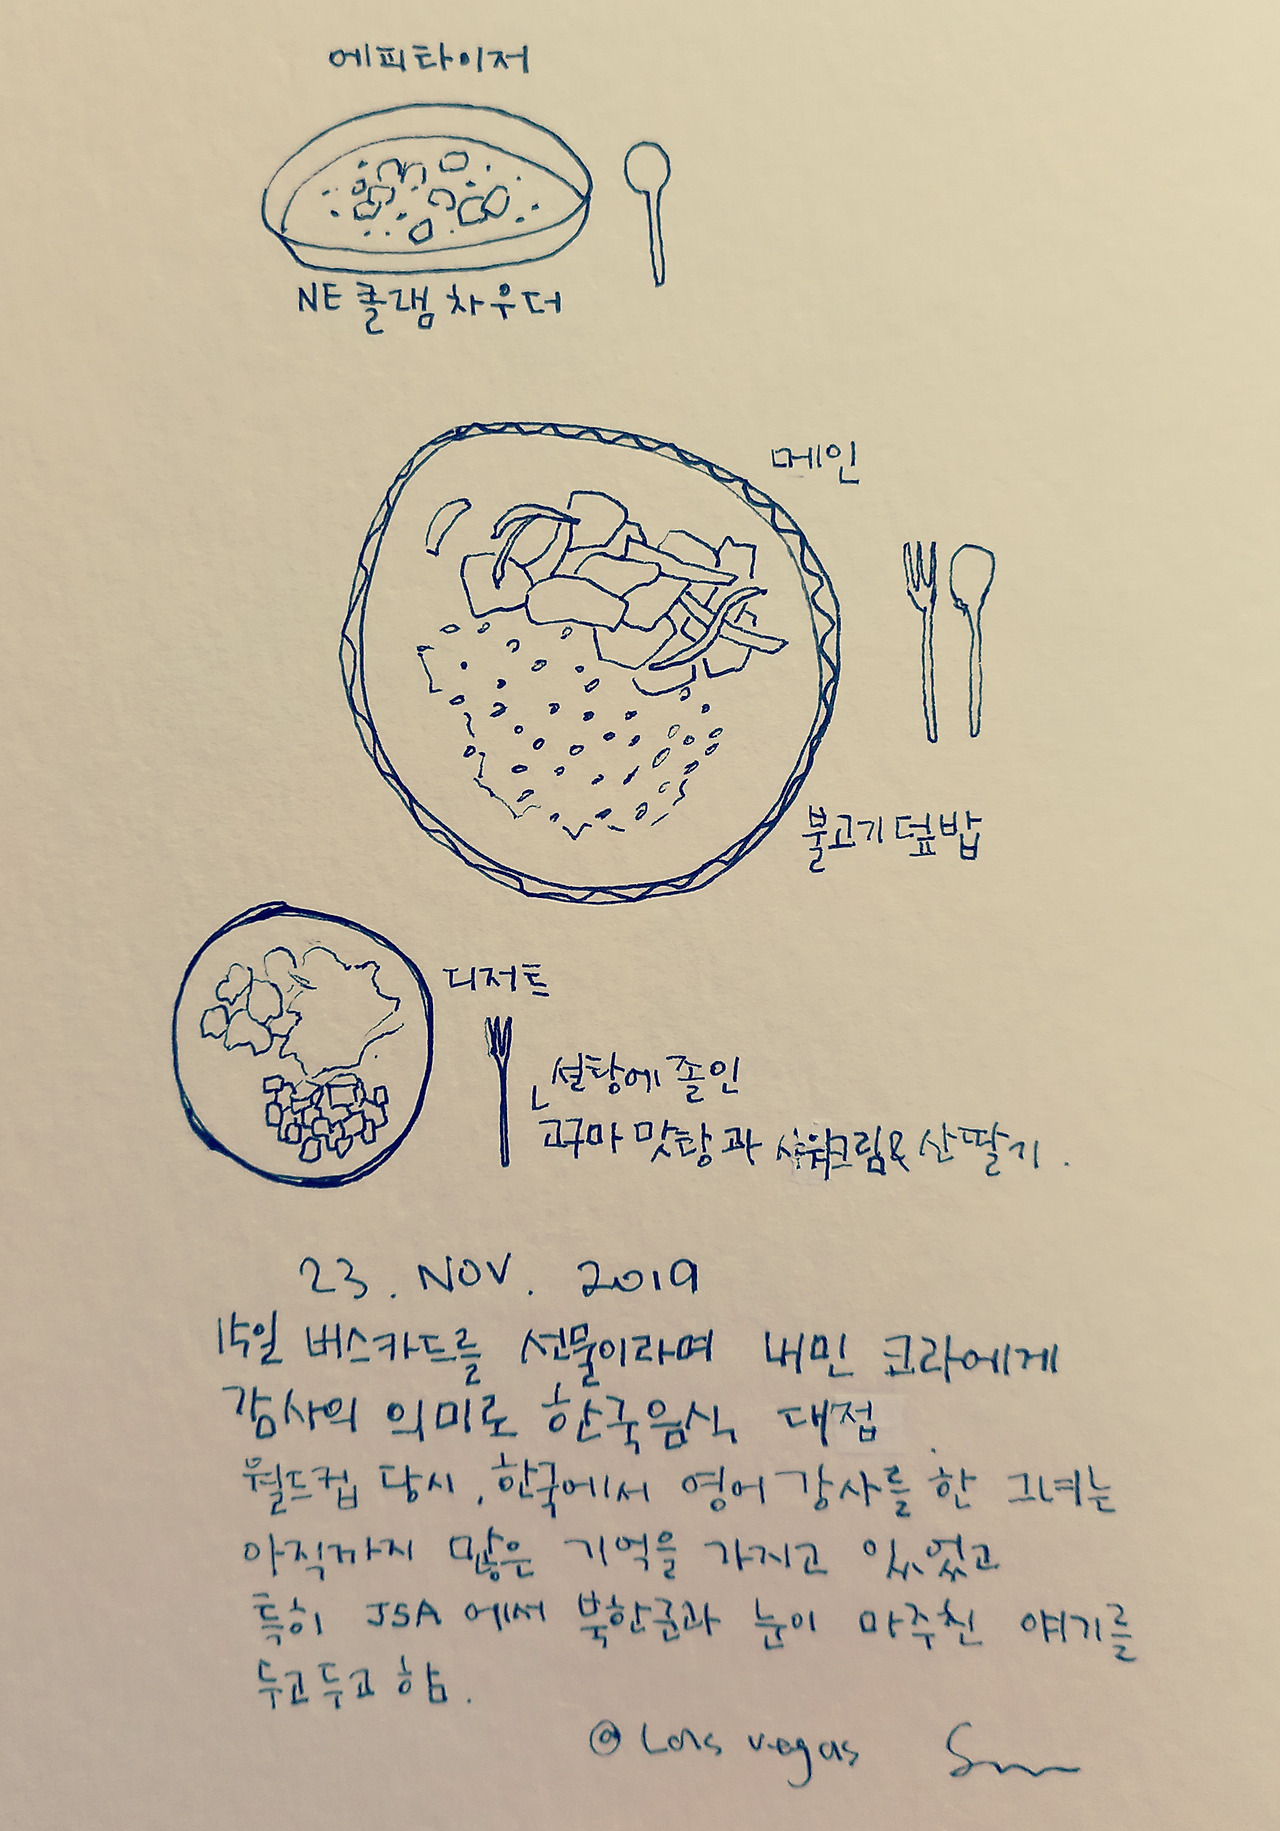 에피타이저
NE 클램 차우더
메인
불고기 덮밥
디저트
ㄴ설탕에 졸인
고구마 맛탕과 사워크림 & 산딸기.
23. NOV. 2019
15일 버스카드를 선물이라며 내민 코라에게
감사의 의미로 한국음식 대접.
월드컵 당시, 한국에서 영어 강사를 한 그녀는
아직까지 많은 기억을 가지고 있었고
특히 JSA에서 북한군과 눈이 마주친 얘기를
두고두고 함.
@Las vegas